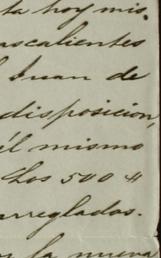 ta hoy mis
ascalientes
Juan de
disposicion,
él mismo
Los 500 $
arreglados.
la nueva